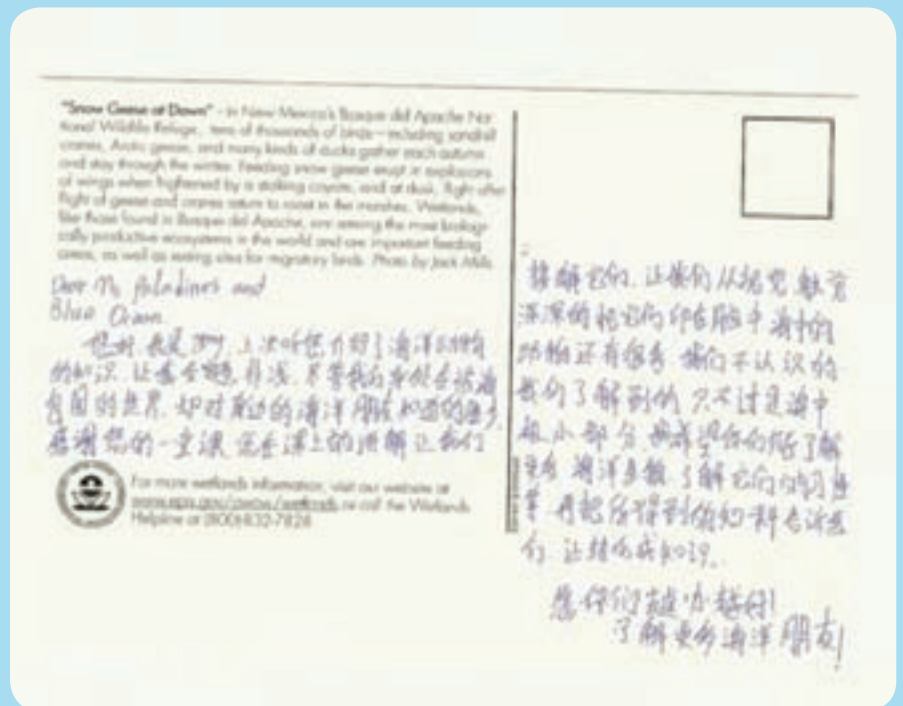 "Snow Geese at Dawn" - In New Mexico's Bosque del Apache Na-
tional Wildlife Refuge, tens of thousands of birds—including sandhill
cranes, Arctic geese, and many kinds of ducks gather each autumn
and stay through the winter. Feeding snow geese erupt in explosions
of wings when frightened by a stalking coyote, and at dusk, flight after
flight of geese and cranes return to roost in the marshes. Wetlands,
like those found in Bosque del Apache, are among the most biologi-
cally productive ecosystems in the world and are important feeding
areas, as well as resting sites for migratory birds. Photo by Jack Mills
Dear Ms Paladines and
Blue Ocean
您好 我是 上次听您介绍了海洋动物
的知识 让我
的世界 却对身边的海洋朋友知道的
感谢您的一堂课 您在课上的讲解让我们
For more wetlands information, visit our website at
www.epa.gov/owow/wetlands or call the Wetlands
Helpline at (800) 832-7828
了解它们 让我们从视觉 触觉
深深的把它们印在脑中 海中的
动物还有很多 我们不认识的
我们了解到的 只不过是海中
极小部分 希望你们 了解
更多 海洋 了解它们的习
再把所得到的知 告诉我
们 让 知识
愿你们越办越好!
了解更多海洋朋友!